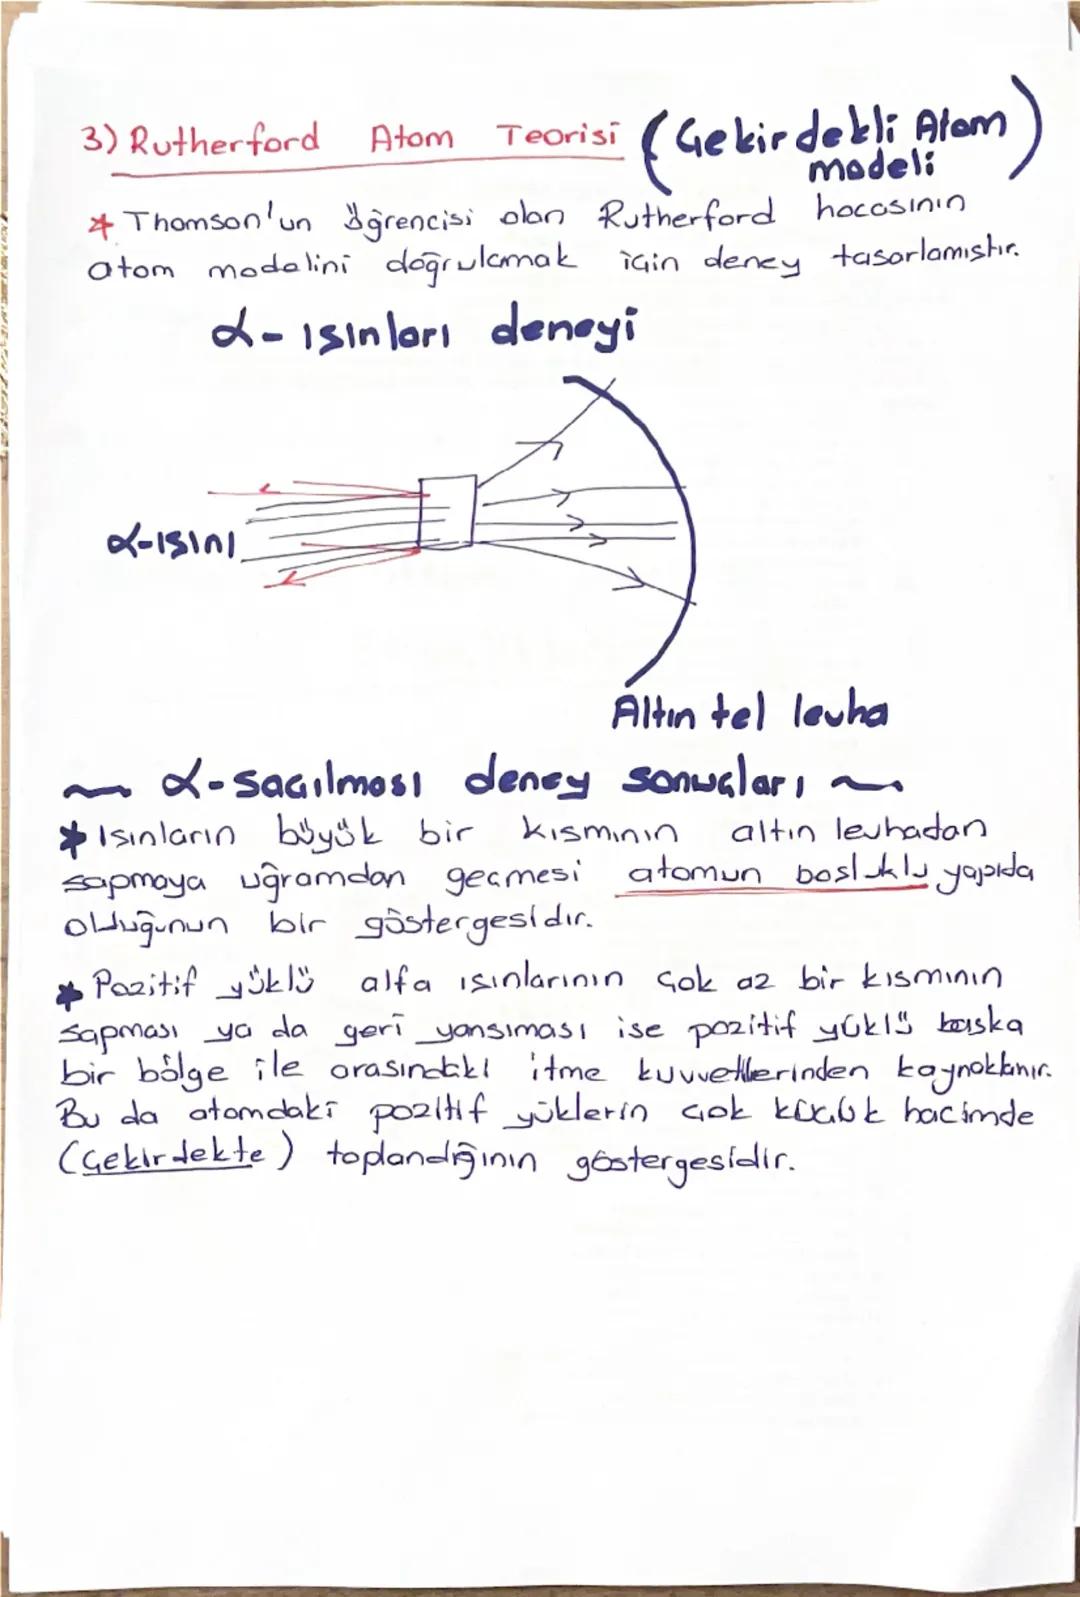 3) Rutherford Atom Teorisi (Çekirdekli Atom modeli)
* Thomson'un öğrencisi olan Rutherford hocasının
atom modelini doğrulamak için deney tasarlamıştır.
α-ışınları deneyi
α-ışını
Altın tel levha
~ α-saçılması deney sonuçları ~
* Işınların büyük bir kısmının altın levhadan
sapmaya uğramdan geçmesi atomun boşluklu yapıda
olduğunun bir göstergesidir.
* Pozitif yüklü alfa ışınlarının çok az bir kısmının
sapması ya da geri yansıması ise pozitif yüklü başka
bir bölge ile arasındaki itme kuvvetlerinden kaynaklanır.
Bu da atomdaki pozitif yüklerin çok küçük hacimde
(Çekirdekte) toplandığının göstergesidir.